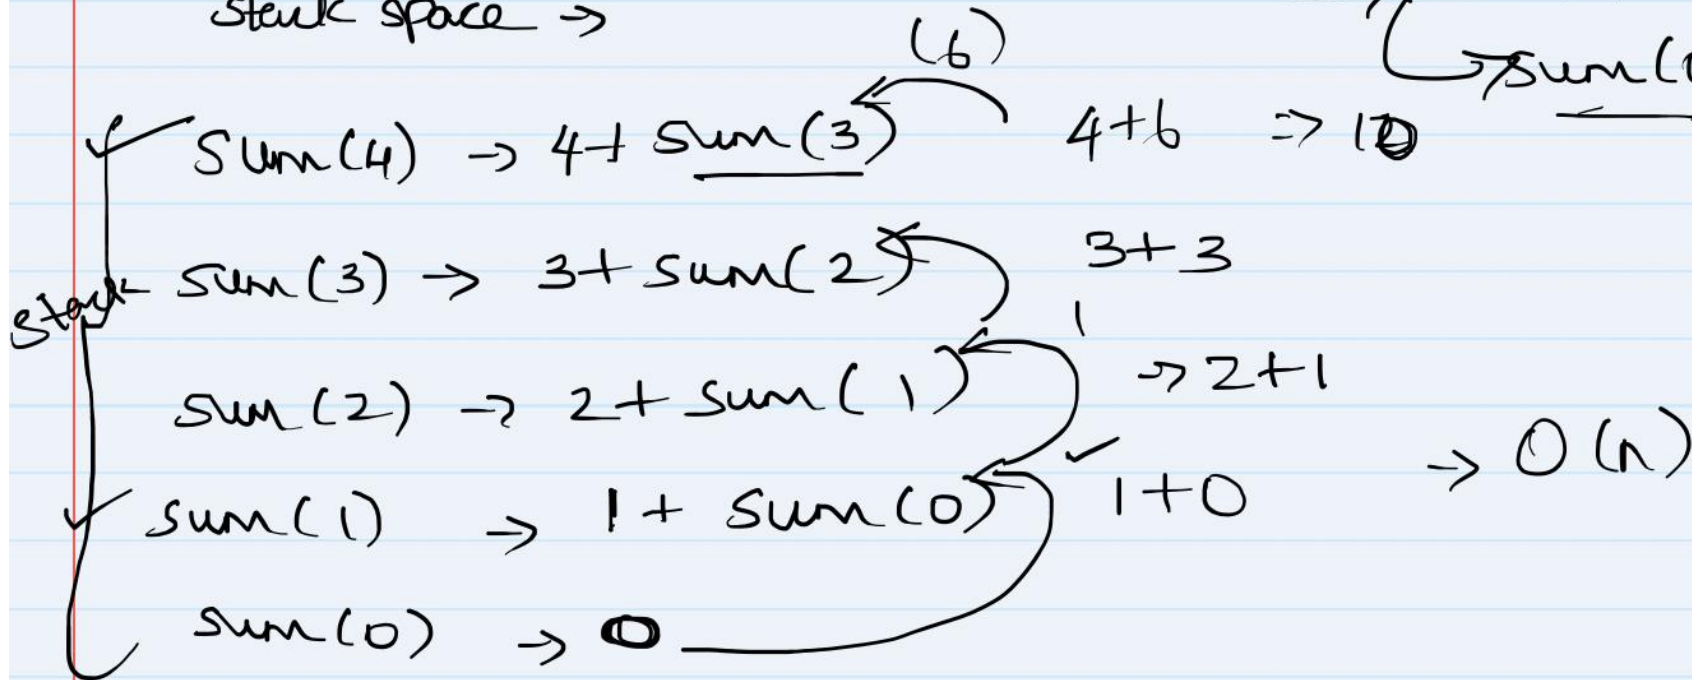 stack space →
(6)
→ sum(
sum(4) → 4+ sum(3) 4+6 => 10
sum(3) → 3+ sum(2) 3+3
stack
sum(2) → 2+ sum(1) → 2+1
→ O(n)
sum(1) → 1+ sum(0) 1+0
sum(0) → 0